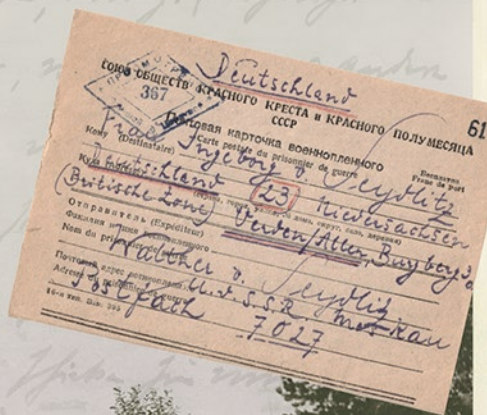 Deutschland
ПРОСМОТРЕНО
367
СОЮЗ ОБЩЕСТВ КРАСНОГО КРЕСТА и КРАСНОГО ПОЛУМЕСЯЦА
СССР
61
Почтовая карточка военнопленного
Carte postale du prisonnier de guerre
Бесплатно
Franc de port
Кому (Destinataire)
Frau Ingeborg v. Seydlitz
Куда
Deutschland 23 Niedersachsen
(Britische Zone) Verden/Aller, Burgberg
Отправитель (Expéditeur)
Фамилия и имя военнопленного
Nom du prisonnier de guerre
Walther v. Seydlitz
Почтовый адрес военнопленного
U.d.S.S.R. Moskau
Adresse du prisonnier de guerre
Postfach 7027
16-я тип. Зак. 395